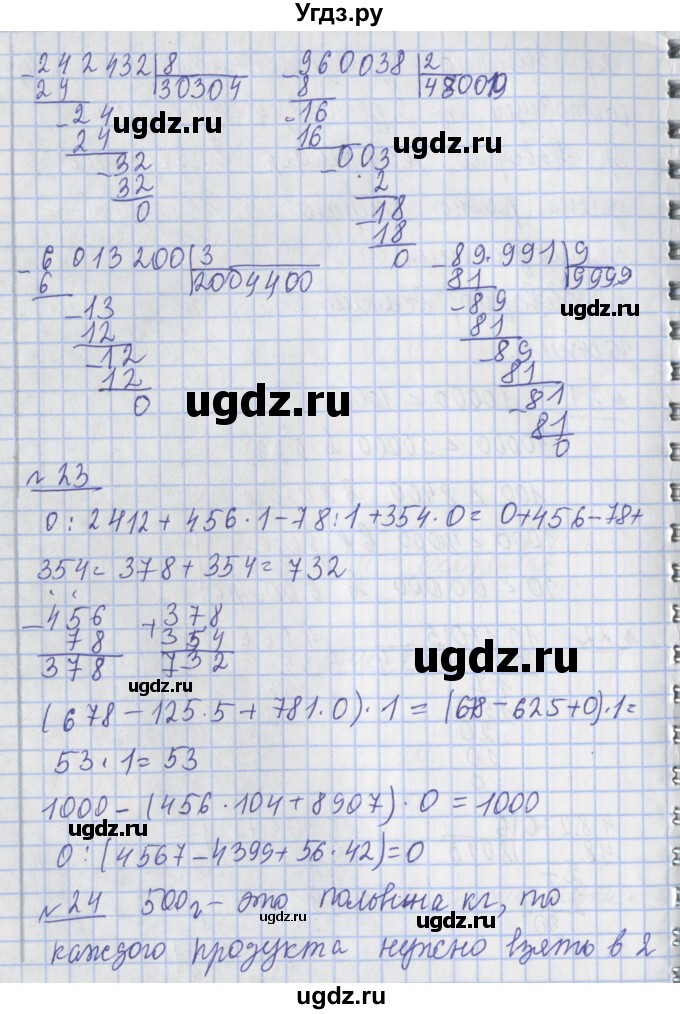 Угдз.ру
-242432|8
24 30304
-24
24
-32
32
0
-960038|2
8 480019
-16
16
-003
2
-18
18
0
-6 013 200|3
6 2004400
-13
12
-12
12
0
-89.991|9
81 9999
-89
81
-89
81
-81
81
0
№23
0:2412+456·1-78:1+354·0=0+456-78+
354=378+354=732
-456
78
378
+378
354
732
(678-125·5+781·0)·1=(678-625+0)·1=
53·1=53
1000-(456·104+8907)·0=1000
0:(4567-4399+56·42)=0
№24 500г- это половина кг, то
каждого продукта нужно взять в 2
ugdz.ru
ugdz.ru
ugdz.ru
ugdz.ru
ugdz.ru
ugdz.ru
ugdz.ru
ugdz.ru
ugdz.ru
ugdz.ru